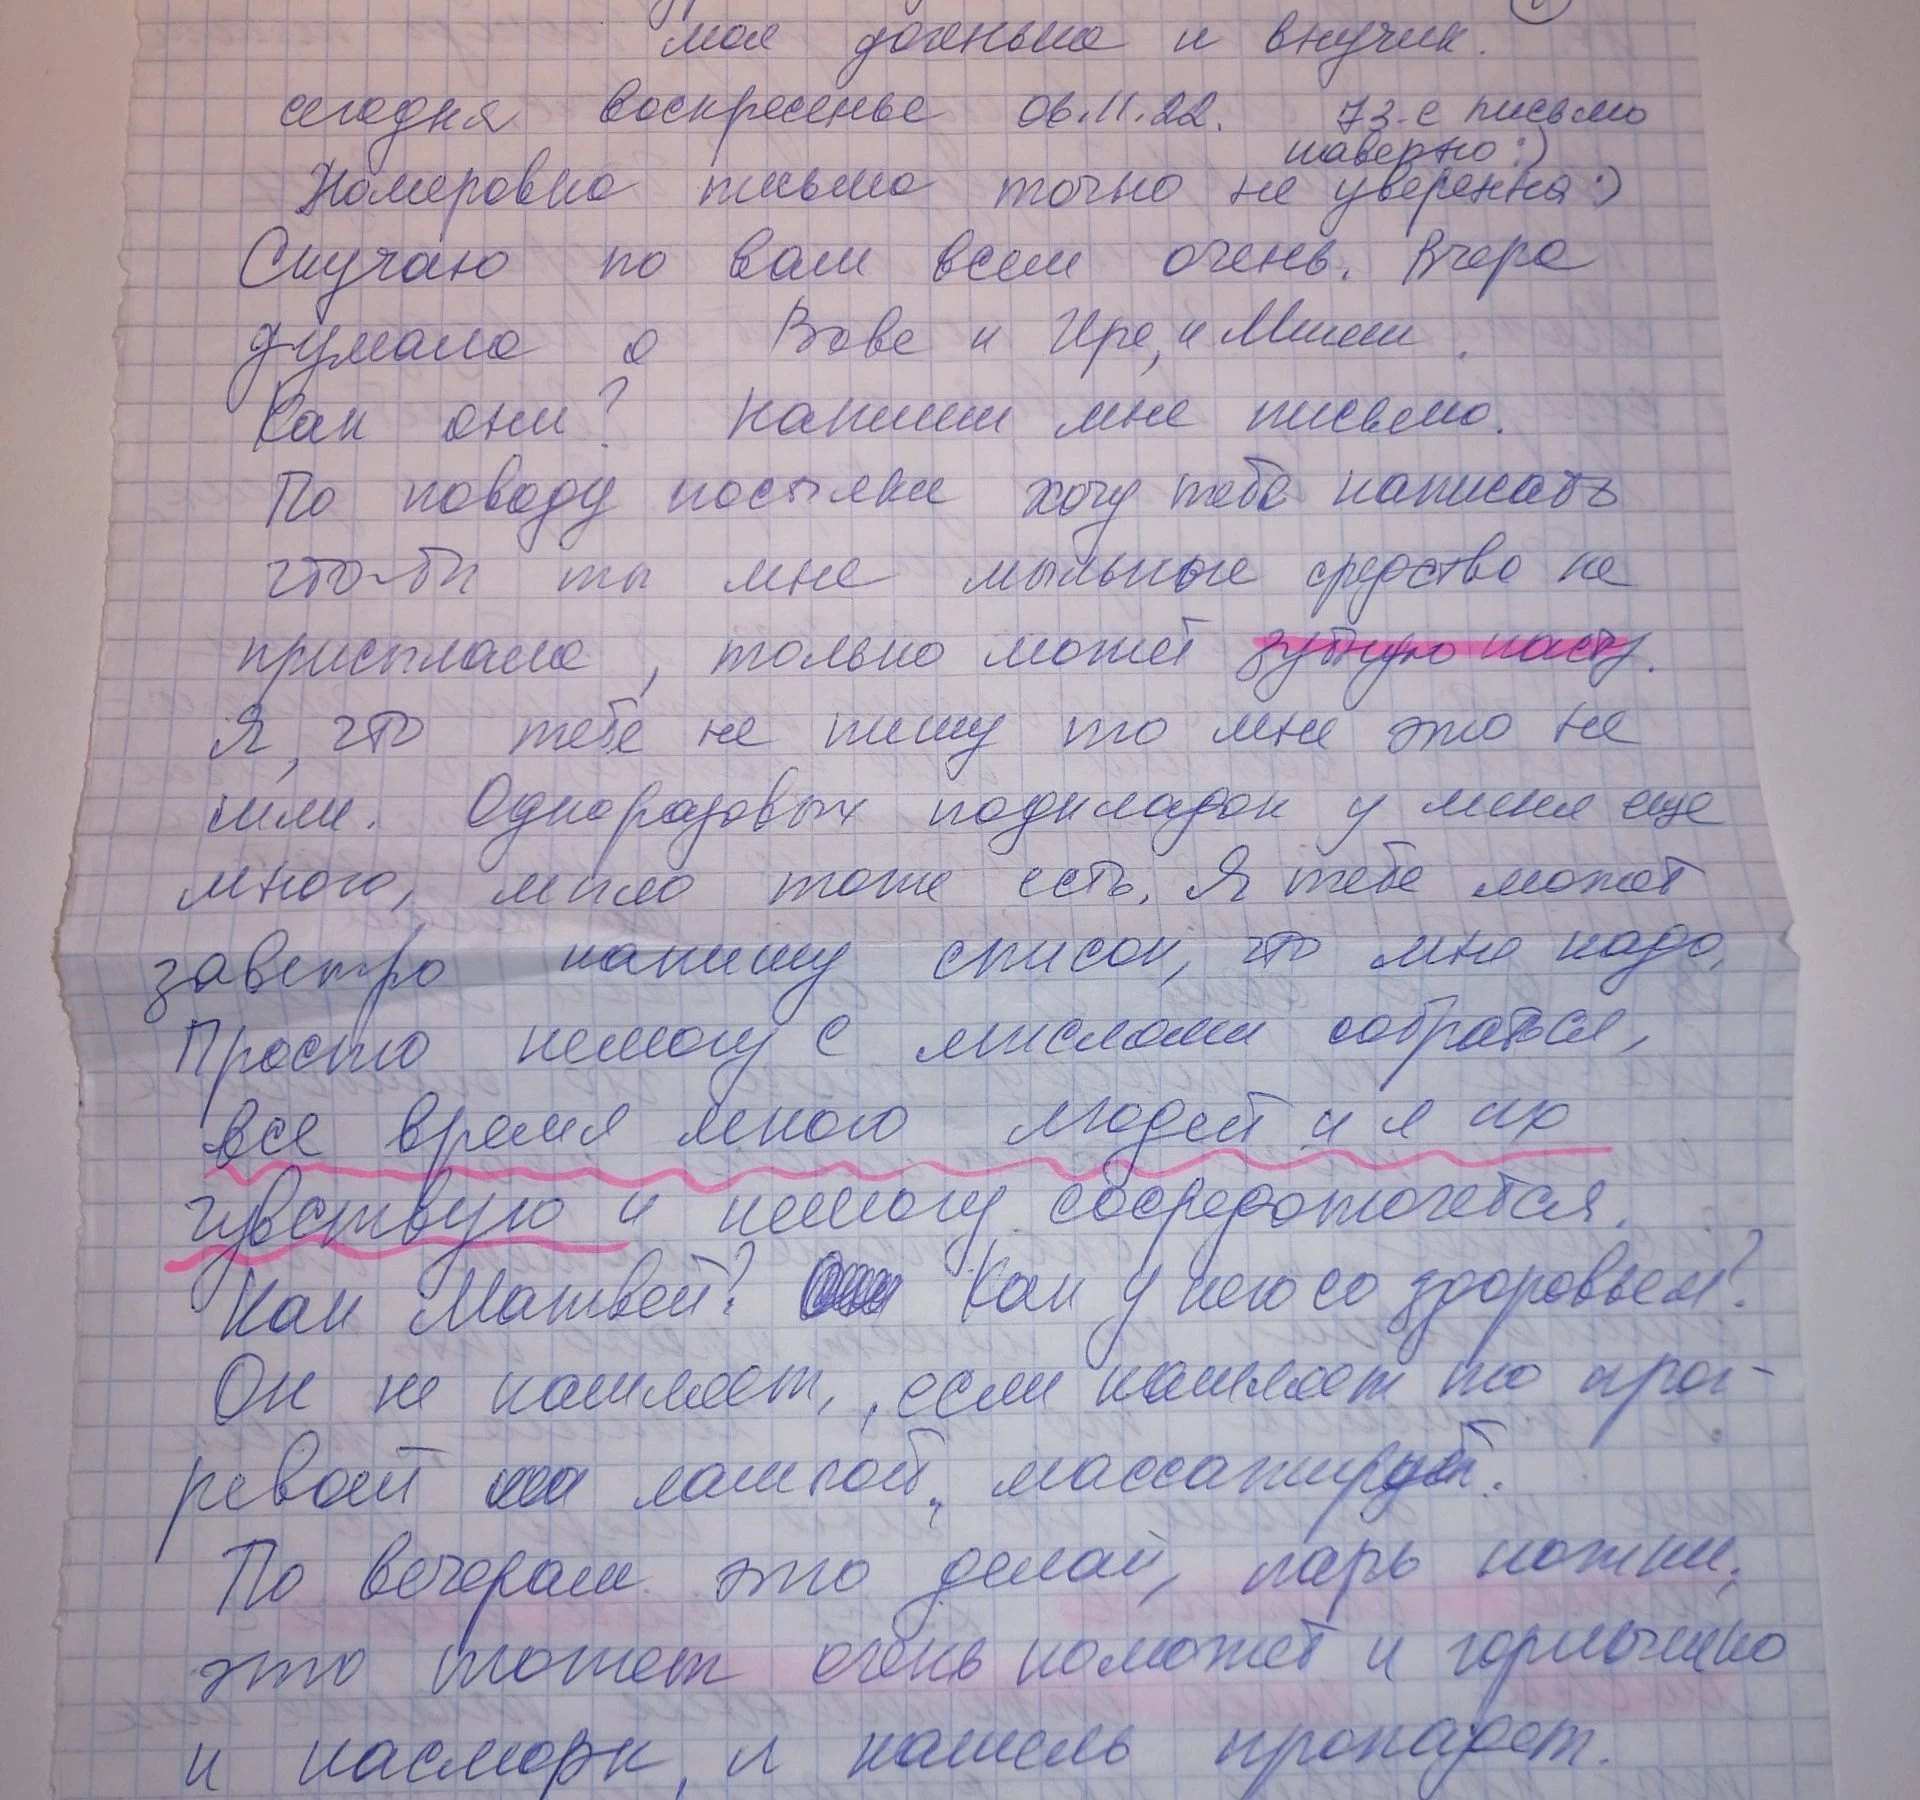 моя доченька и внучик.
сегодня воскресенье 06.11.22. 73-е письмо
наверно :)
Номеровка письма точно не уверенна :)
Скучаю по вам всем очень. Вчера
думала о Вове и Ире, и Миши.
Как они? Напиши мне письмо.
По поводу посылки хочу тебе написать
что-бы ты мне мыльные средства не
присылала, только может зубную пасту.
Я, что тебе не пишу то мне это не
шли. Одноразовых подкладок у меня еще
много, мыло тоже есть. Я тебе может
завтро напишу список, что мне надо.
Просто немогу с мыслями собраться,
все время много людей и я их
чувствую и немогу сосредоточется.
Как Матвей? Как у него со здоровьем?
Он не кашляет, если кашляет то прог-
ревай лампой, массажируй.
По вечерам это делай, парь ножки,
это может очень поможет и горлышко
и насморк, и кашель пропадет.